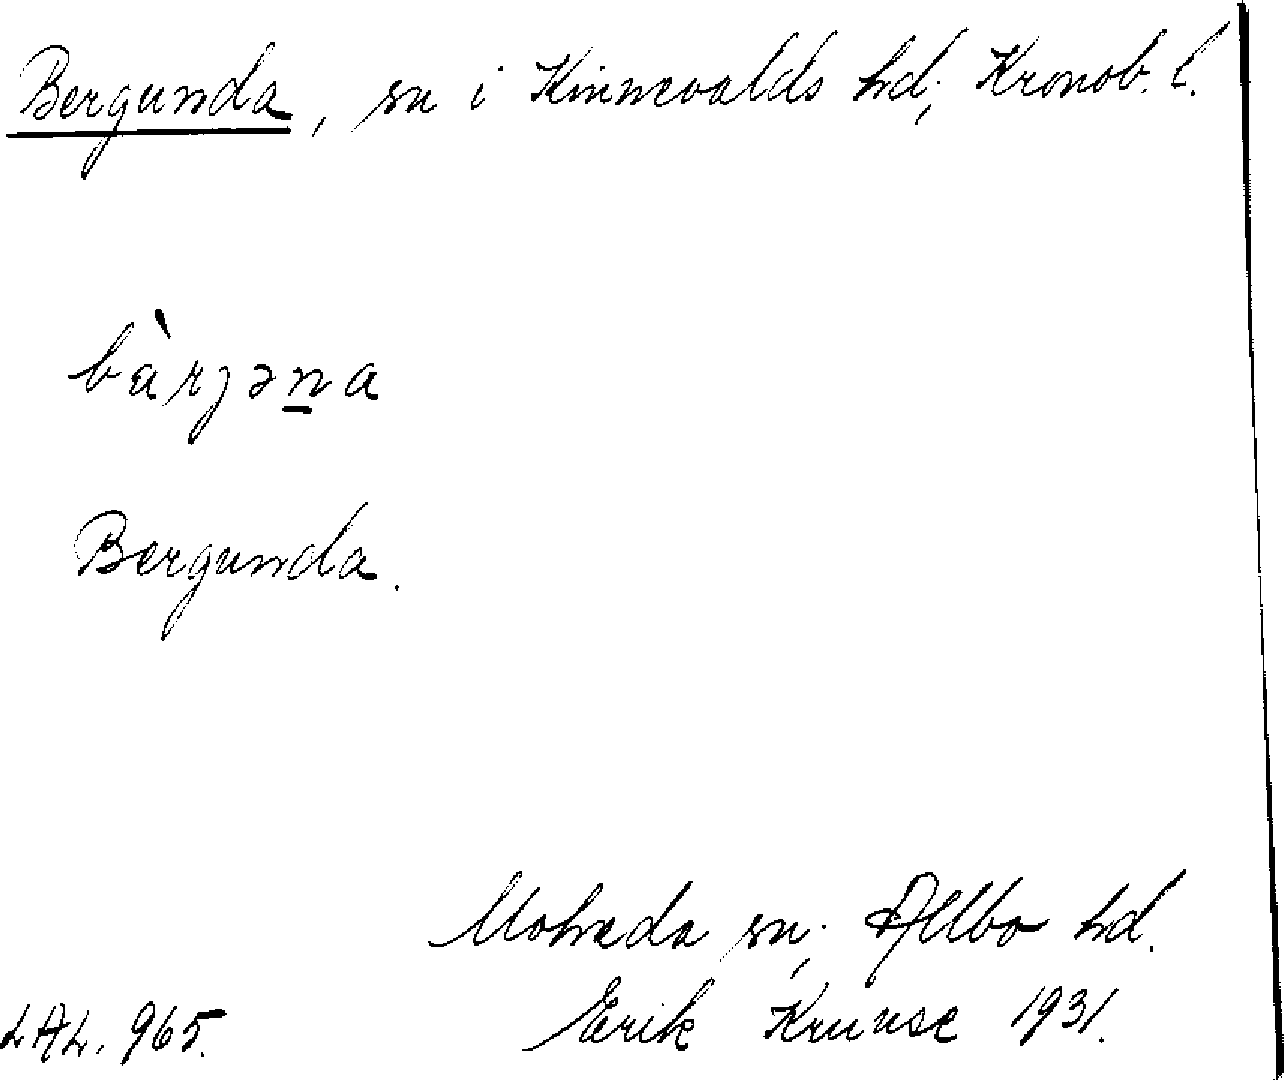 Bergunda, sn i Kinnevalds hd; Kronob. l.
bàrjəna
Bergunda.
Moheda sn; Allbo hd.
LAL. 965. Erik Kruuse 1931.